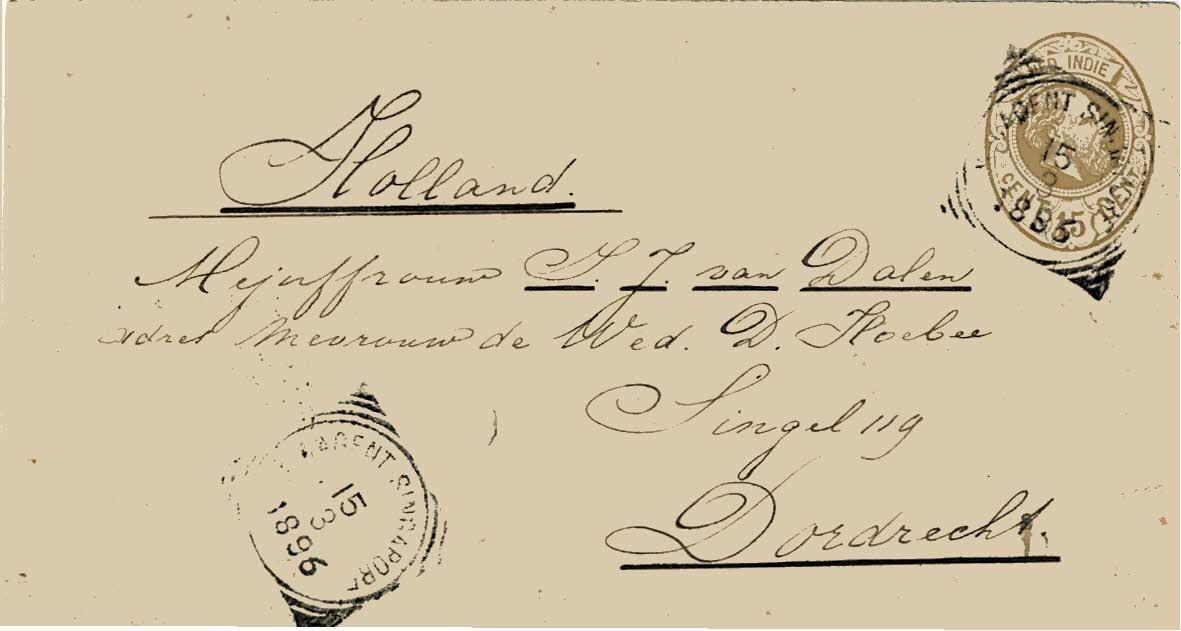 NED. INDIE
CENT 15 CENT
AGENT SINGAPORE
15
3
1896
Holland.
Mejuffrouw S. J. van Dalen
adres Mevrouw de Wed. D. Hoebee
Singel 119
Dordrecht.
AGENT SINGAPORE
15
3
1896